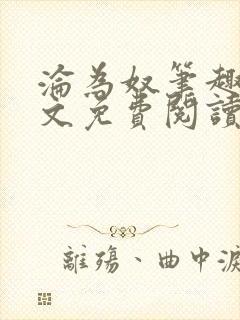 淪為奴筆趣
文免費閱讀
離殤、曲中淚